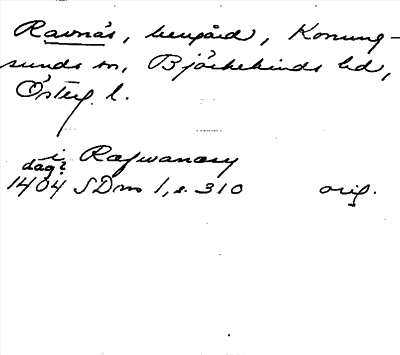 Ravnäs, herrgård, Konung-
sunds sn, Björkekinds hd,
Österg. l.
i Rafwanäsy
dag?
1404 SDns 1, s. 310 orig.